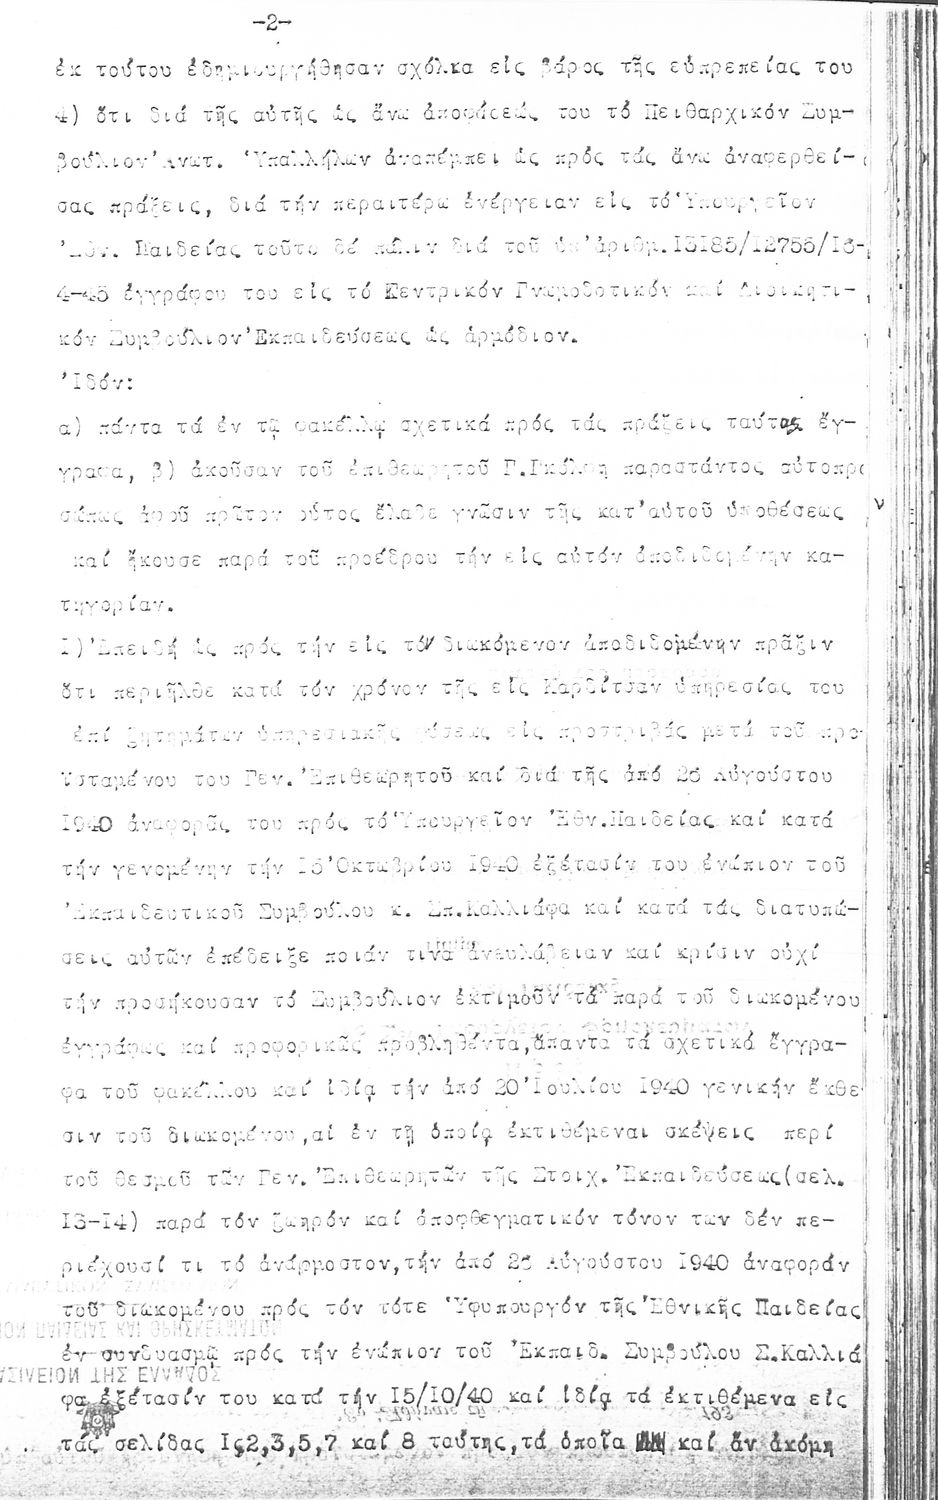 -2-
ἐκ τούτου ἐδημιουργήθησαν σχόλια εἰς βάρος τῆς εὐπρεπείας του
4) ὅτι διά τῆς αὐτῆς ὡς ἄνω ἀποφάσεώς του τό Πειθαρχικόν Συμ-
βούλιον Ἀνωτ. Ὑπαλλήλων ἀναπέμπει ὡς πρός τάς ἄνω ἀναφερθεί-
σας πράξεις, διά τήν περαιτέρω ἐνέργειαν εἰς τό Ὑπουργεῖον
Ἐθν. Παιδείας τοῦτο δέ πάλιν διά τοῦ ὑπ' ἀριθμ. I3I85/I2755/I6-
4-45 ἐγγράφου του εἰς τό Κεντρικόν Γνωμοδοτικόν καί Διοικητι-
κόν Συμβούλιον Ἐκπαιδεύσεως ὡς ἁρμόδιον.
Ἰδόν:
α) πάντα τά ἐν τῷ φακέλλῳ σχετικά πρός τάς πράξεις ταύτας ἔγ-
γραφα, β) ἀκοῦσαν τοῦ ἐπιθεωρητοῦ Γ. παραστάντος αὐτοπρο
σώπως ἀφοῦ πρῶτον οὗτος ἔλαβε γνῶσιν τῆς κατ' αὐτοῦ ὑποθέσεως
καί ἤκουσε παρά τοῦ προέδρου τήν εἰς αὐτόν ἀποδιδομένην κα-
τηγορίαν.
I) Ἐπειδή ὡς πρός τήν εἰς τόν διωκόμενον ἀποδιδομένην πρᾶξιν
ὅτι περιῆλθε κατά τόν χρόνον τῆς εἰς Καρδίτσαν ὑπηρεσίας του
ἐπί ζητημάτων ὑπηρεσιακῆς φύσεως εἰς προστριβάς μετά τοῦ προ-
ϊσταμένου του Γεν. Ἐπιθεωρητοῦ καί διά τῆς ἀπό 26 Αὐγούστου
1940 ἀναφορᾶς του πρός τό Ὑπουργεῖον Ἐθν. Παιδείας καί κατά
τήν γενομένην τήν I5 Ὀκτωβρίου 1940 ἐξέτασίν του ἐνώπιον τοῦ
Ἐκπαιδευτικοῦ Συμβούλου κ. Σπ. Καλλιάφα καί κατά τάς διατυπώ-
σεις αὐτῶν ἐπέδειξε ποιάν τινα ἀνευλάβειαν καί κρίσιν οὐχί
τήν προσήκουσαν τό Συμβούλιον ἐκτιμοῦν τά παρά τοῦ διωκομένου
ἐγγράφως καί προφορικῶς προβληθέντα, ἅπαντα τά σχετικά ἔγγρα-
φα τοῦ φακέλλου καί ἰδίᾳ τήν ἀπό 20 Ἰουλίου 1940 γενικήν ἔκθε
σιν τοῦ διωκομένου, αἱ ἐν τῇ ὁποίᾳ ἐκτιθέμεναι σκέψεις περί
τοῦ θεσμοῦ τῶν Γεν. Ἐπιθεωρητῶν τῆς Στοιχ. Ἐκπαιδεύσεως (σελ.
I3-I4) παρά τόν ζωηρόν καί ἀποφθεγματικόν τόνον των δέν πε-
ριέχουσί τι τό ἀνάρμοστον, τήν ἀπό 26 Αὐγούστου 1940 ἀναφοράν
τοῦ διωκομένου πρός τόν τότε Ὑφυπουργόν τῆς Ἐθνικῆς Παιδείας
ἐν συνδυασμῷ πρός τήν ἐνώπιον τοῦ Ἐκπαιδ. Συμβούλου Σ. Καλλιά
φα ἐξέτασίν του κατά τήν I5/10/40 καί ἰδίᾳ τά ἐκτιθέμενα εἰς
τάς σελίδας I,2,3,5,7 καί 8 ταύτης, τά ὁποῖα καί ἄν ἀκόμη